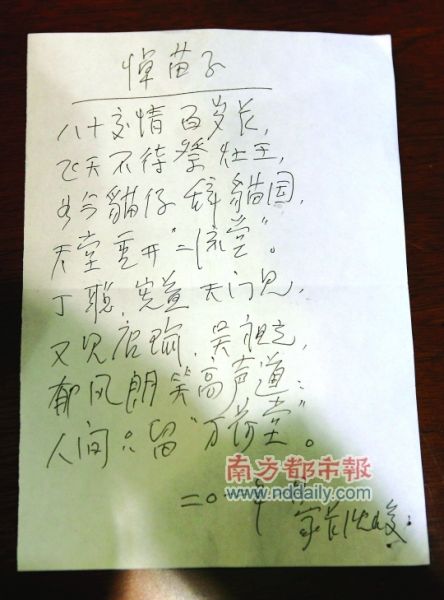 悼苗子
八十交情百岁长,
飞天不待祭灶王,
如今貓仔辞貓国,
天堂重开“二流堂”。
丁聪,宪益天门见,
又见唐瑜,吴祖光,
郁风朗笑高声道:
人间只留“万荷堂”。
南方都市報
www.nddaily.com
二〇一